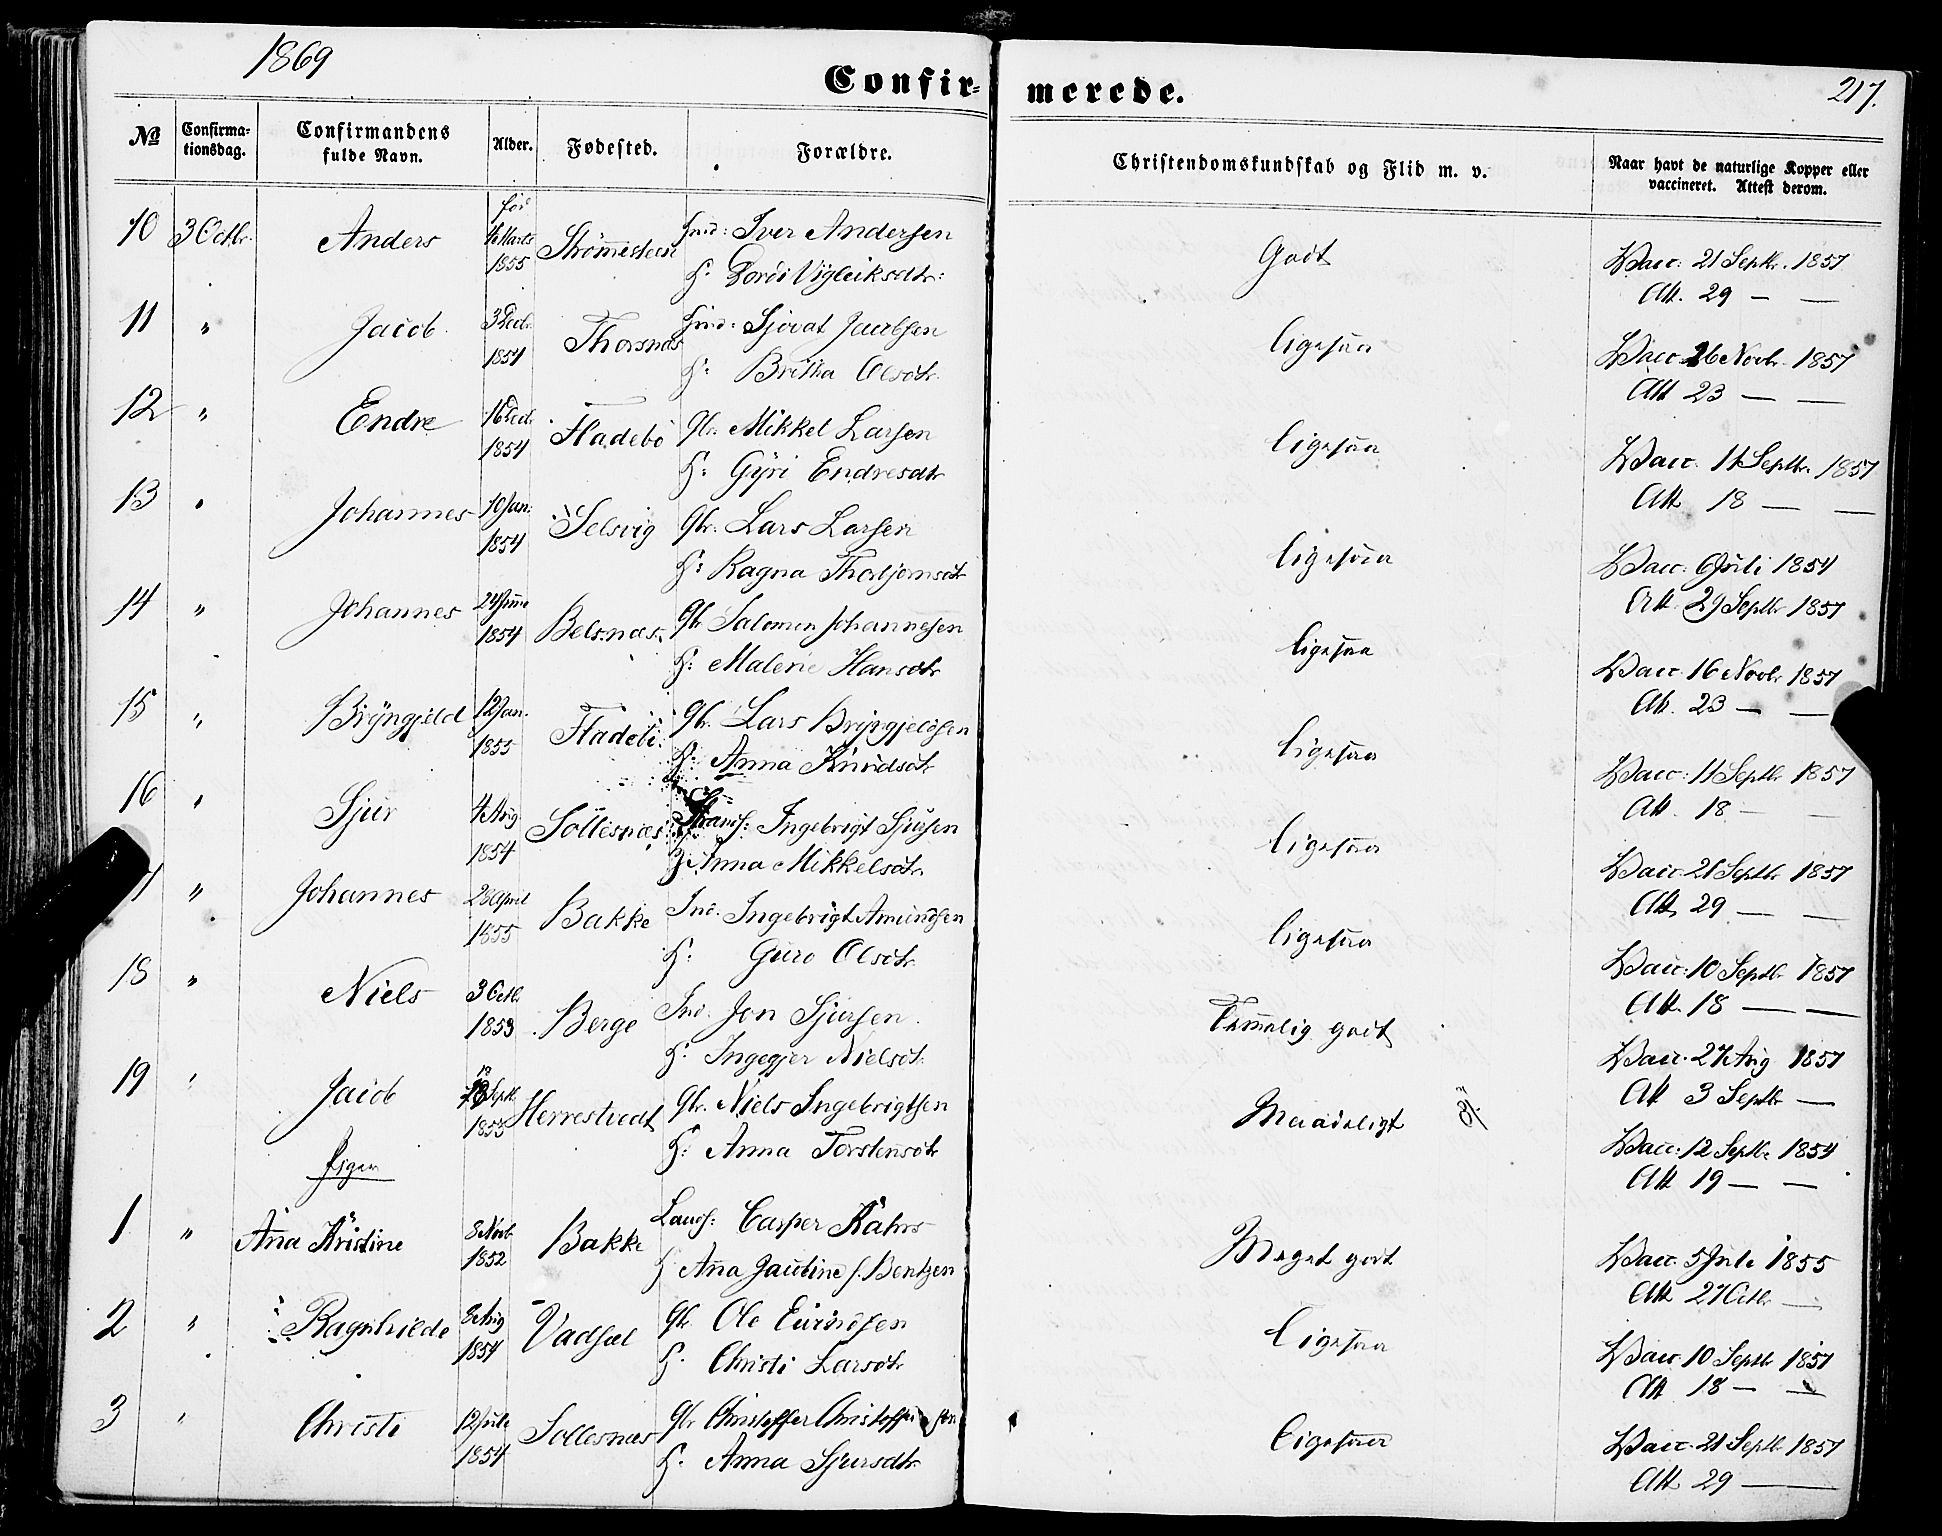 1869
Confir-
merede.
217.
No
Confirma-
tionsdag.
Confirmandens
fulde Navn.
Alder.
Fødested.
Forældre.
Christendomskundskab og Flid m. v.
Naar havt de naturlige Kopper eller
vaccineret. Attest derom.
10 3 Octbr. Anders 1855 Iver Andersen Godt Vacc: 21 Septbr. 1857
H: Vigleiksdtr: Att. 29 — —
11 " Jacob 3 Decbr. 1854 Thorsnæs Sjovat Jacobsen ligesaa Vacc. 16 Novbr. 1857
H: Britha Olsdtr. Att 23 — —
12 " Endre 16 Decbr. 1854 Fladebö Gbr. Mikkel Larsen ligesaa Vacc. 11 Septbr. 1857
H: Gÿri Endresdtr Att 18 — —
13 " Johannes 10 Jan: 1854 Selsvig Gbr. Lars Larsen ligesaa Vacc: 6 Juli 1854
H: Ragna Thorbjørnsdtr Att. 29 Septbr 1857
14 " Johannes 24 Juni 1854 Belsnæs Gbr Salomon Johannesen ligesaa Vacc 16 Novbr 1857
H: Malene Hansdtr Att. 23 — —
15 " Brÿngjeld 12 Jan. 1855 Fladebö Gbr. Lars Brÿngjeldsen ligesaa Vacc: 11 Septbr 1857
H: Anna Knudsdtr Att. 18 — —
16 " Sjur 4 Aug 1854 Sollesnæs Strands: Ingebrigt Sjursen ligesaa Vacc. 21 Septbr 1857
H: Anna Mikkelsdtr. Att. 29 — —
" Johannes 28 April 1855 Bakke Ind. Ingebrigt Amundsen ligesaa Vacc: 10 Septbr 1857
H: Guro Olsdtr Att. 18 — —
18 " Niels 3 Octb. 1853 Berge Ind. Jon Sjursen Temmelig godt Vacc. 27 Aug 1857
H: Ingegjer Nielsdtr. Att 3 Septbr —
19 " Jacob Septb. Herrestvedt Gbr. Niels Ingebrigtsen Maadeligt Vacc: 12 Septbr 1854
H: Anna Torstensdtr Att 19 — —
Piger
1 " Ana Kristine 8 Novb 1852 Bakke Lands: Casper Kahrs Meget godt Vacc 5 Juli 1855
H Ana Jacobine f. Bentzen Att 27 Octbr. —
2 " Ragnhilde 8 Aug 1854 Vadsel Gbr Ole Eivindsen Ligesaa Vacc 10 Septbr 1857
H. Christi Larsdtr Att 18 — —
3 " Christi 12 Juli 1854 Sollesnæs Gbr Christoffer Christoffersen Ligesaa Vacc. 21 Septbr 1857
H. Anna Sjursdtr. Att 29 — —